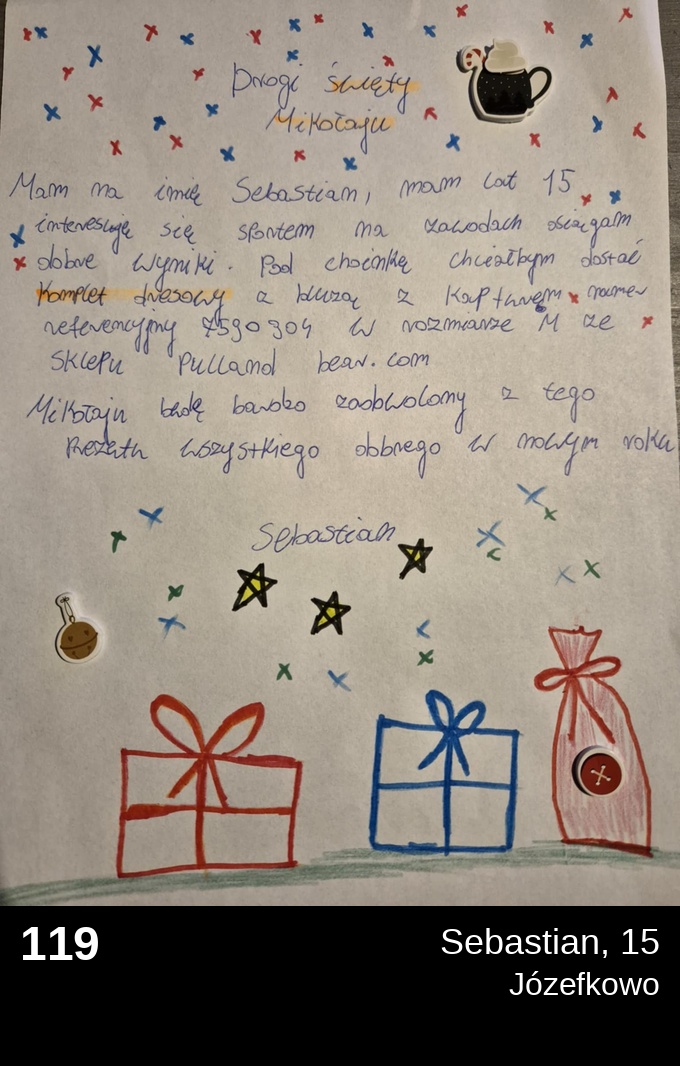 Drogi święty
Mikołaju
Mam na imię Sebastian, mam lat 15
interesuję się sportem na zawodach osiągam
dobre wyniki. Pod choinkę chciałbym dostać
Komplet dresowy z bluzą z Kapturem numer
referencyjny 7590904 w rozmiarze M ze
Sklepu Pulland bear.com
Mikołaju będę bardzo zadowolony z tego
Prezętu wszystkiego dobrego w nowym roku
Sebastian
119
Sebastian, 15
Józefkowo